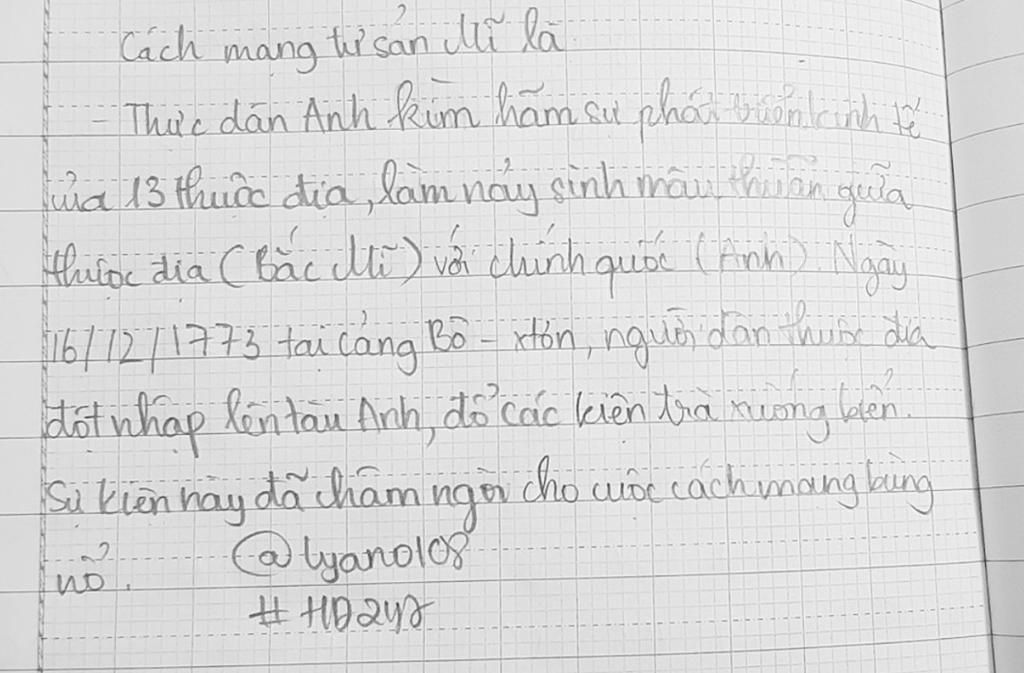 Cách mạng tư sản Mĩ là
- Thực dân Anh kìm hãm sự phát triển kinh tế
của 13 thuộc địa, làm nảy sinh mâu thuẫn giữa
thuộc địa (Bắc Mĩ) với chính quốc (Anh). Ngày
16/12/1773 tại cảng Bô-xtơn, người dân thuộc địa
đột nhập lên tàu Anh, đổ các kiện trà xuống biển.
Sự kiện này đã châm ngòi cho cuộc cách mạng bùng
nổ.
@lyano108
# HD247